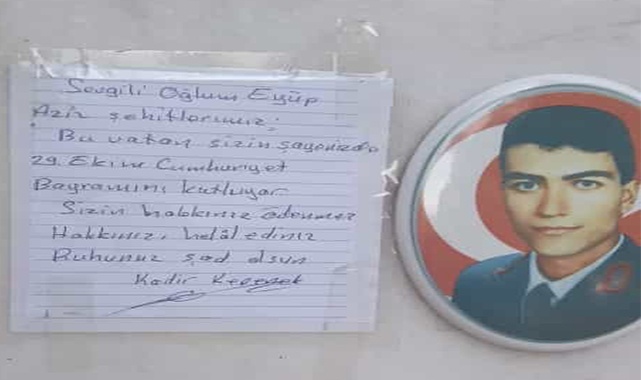 Sevgili Oğlum Eyüp
Aziz şehitlerimiz;
Bu vatan sizin sayenizde
29. Ekim Cumhuriyet
Bayramını kutluyor
Sizin hakkınız ödenmez
Hakkınızı helâl ediniz
Ruhunuz şad olsun
Kadir